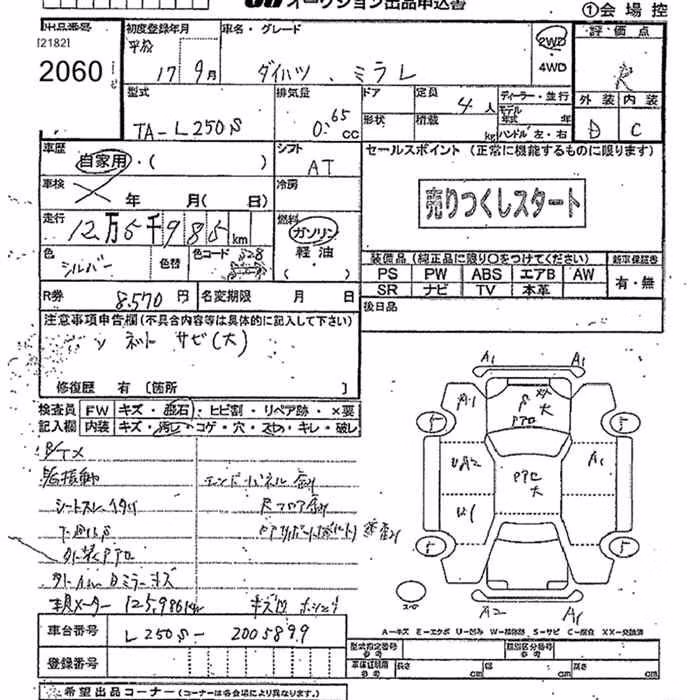 オークション出品申込書
①会場控
出品番号
[2182]
2060
初度登録年月
平成
17 9月
車名・グレード
ダイハツ . ミラ L
2WD
4WD
評価点
R
外装 内装
D C
型式
TA-L250S
排気量
0.65
CC
ドア
形状
定員
4人
積載
kg
ディーラー・並行
モデル
年式 年
ハンドル 左・右
車歴
自家用・( )
シフト
AT
セールスポイント (正常に機能するものに限ります)
車検
年 月( 日)
冷房
売りつくしスタート
走行
12万5千985km
燃料
ガソリン
軽油
( )
色
シルバー
色替
色コード
S28
装備品 (純正品に限り○をつけてください)
新車保証書
PS PW ABS エアB AW
SR ナビ TV 本革
有・無
R券
8,570円
名変期限 月 日
後日品
注意事項申告欄 (不具合内容等は具体的に記入して下さい)
ネット サビ(大)
修復歴 有 〔箇所 〕
検査員
記入欄
FW キズ・飛石・ヒビ割・リペア跡・×要
内装 キズ・汚レ・コゲ・穴・スレ・キレ・破レ
シートスレ ヘタリ
外装ププロ
車両メーター 125,986km
A1 A1
A1
P XX
大
UA2
A1
U1
大
5 5
5 5
スペア
A2 A1
A-キズ E-エクボ U-凹み W-補修跡 S-サビ C-腐蝕 XX-交換済
車台番号
L250S- 2005899
登録番号
型式指定番号
参考
類別区分番号
参考
車体証明用
参考
長さ 幅 高さ
希望出品コーナー (コーナーは各会場により異なります。)